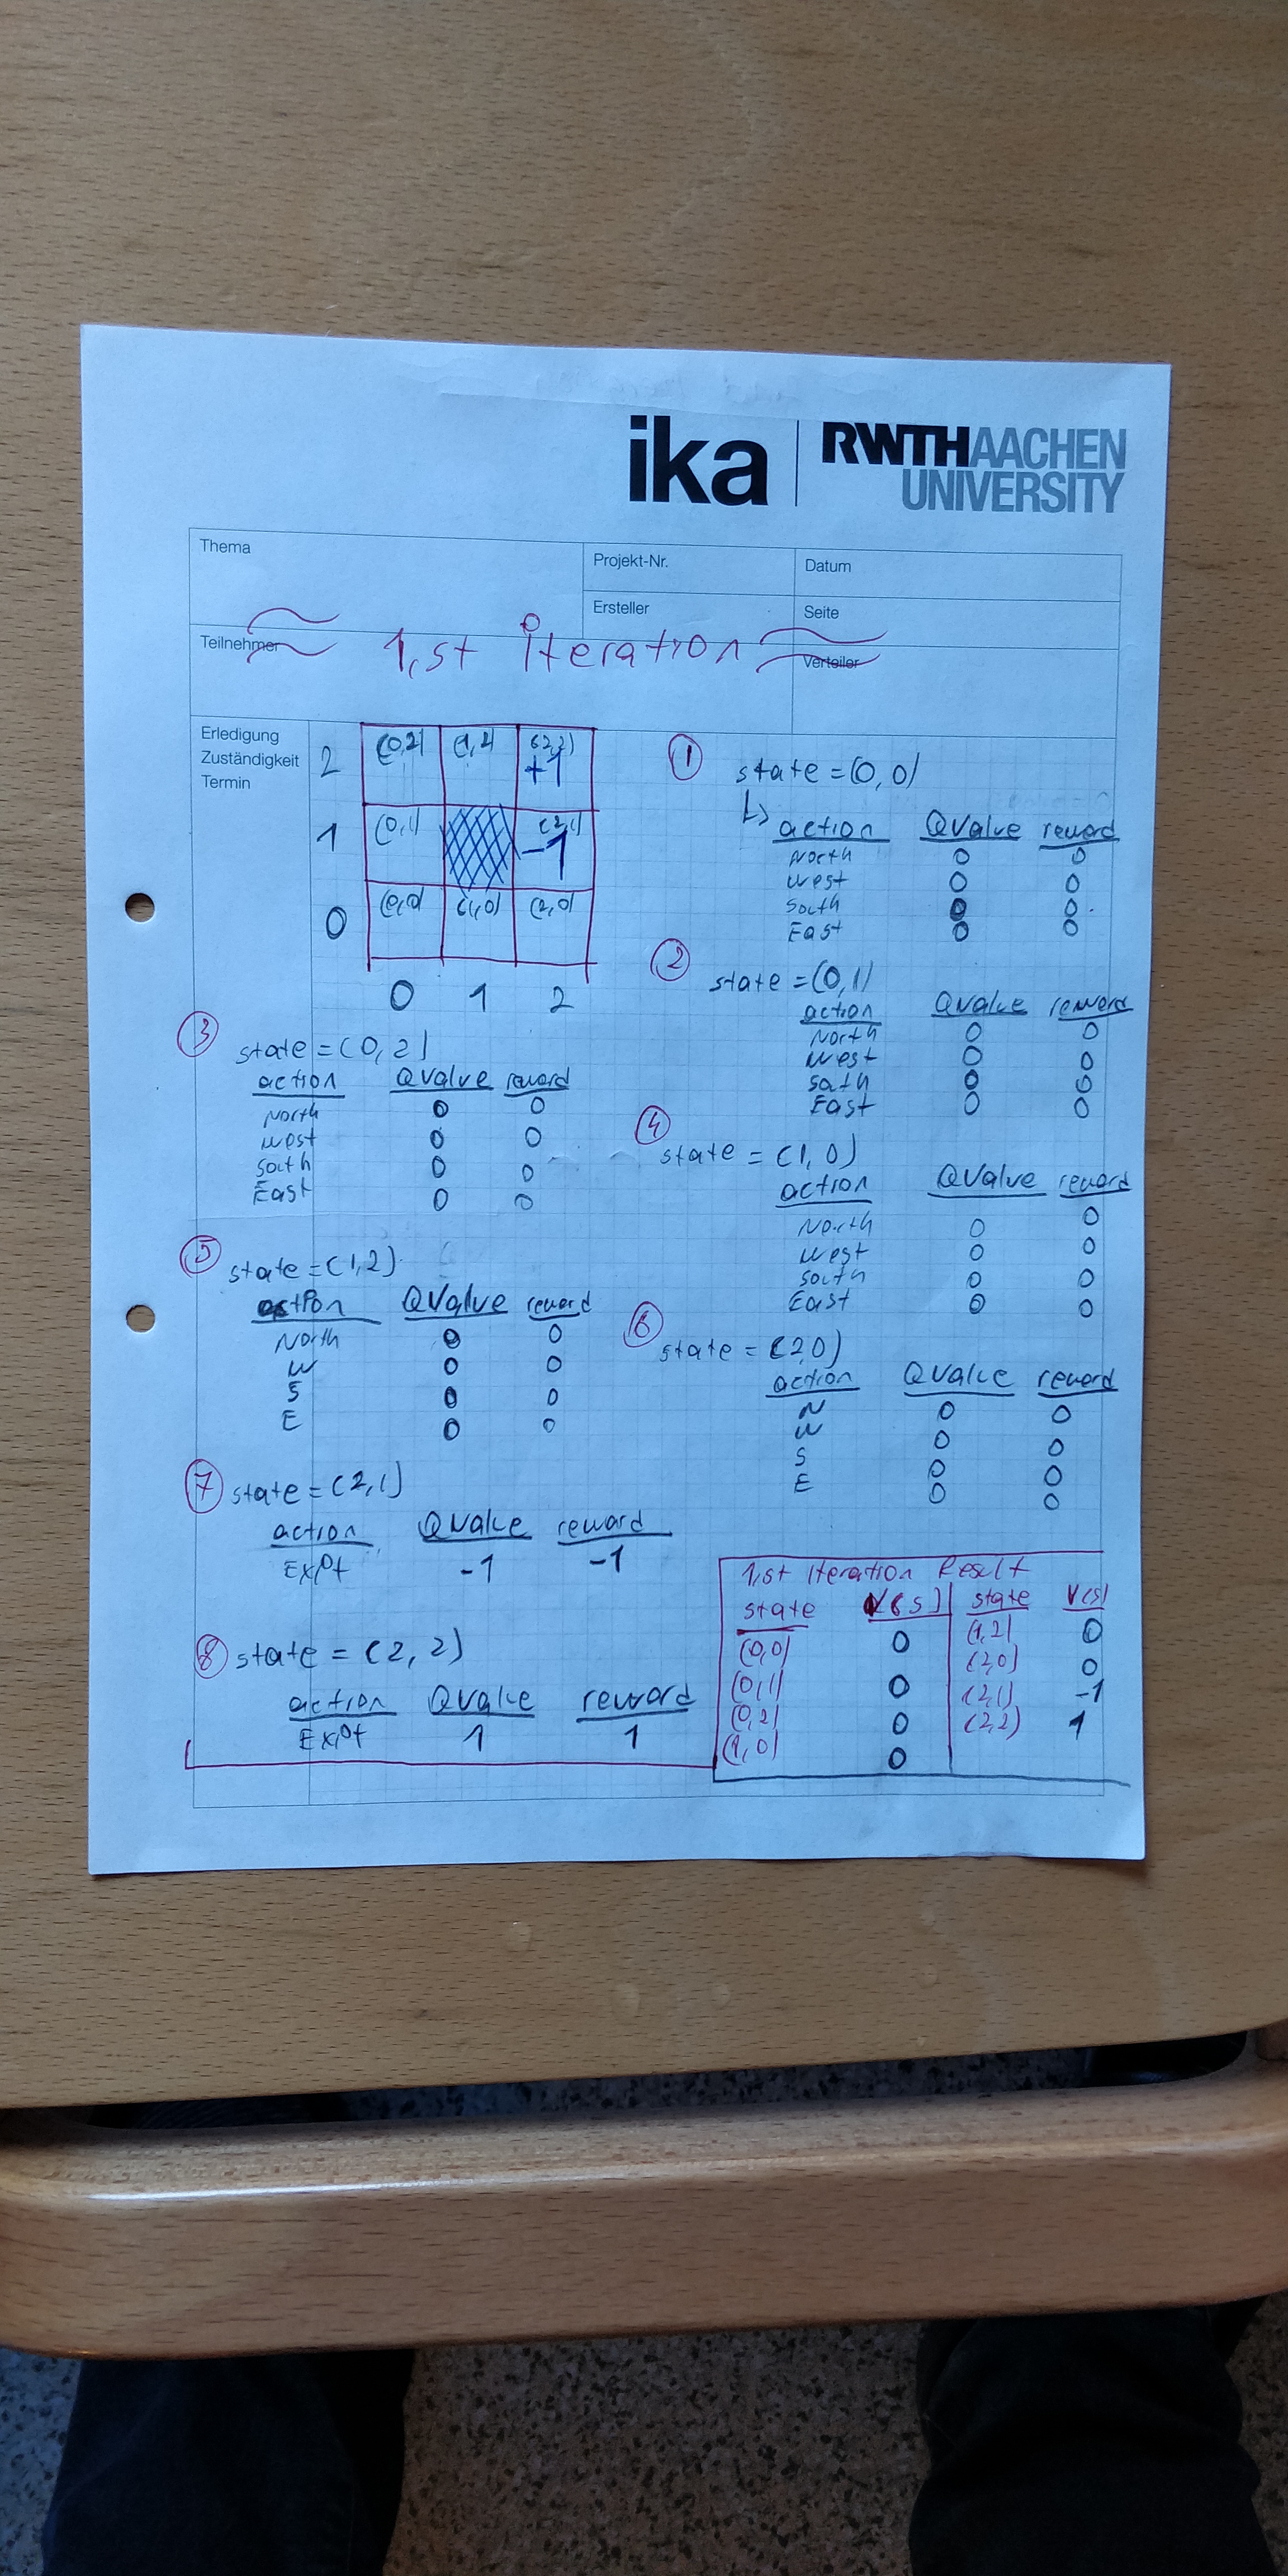 ika
RWTHAACHEN
UNIVERSITY
Thema
Projekt-Nr.
Datum
Ersteller
Seite
Teilnehmer
Verteiler
1,st iteration
Erledigung
Zuständigkeit
Termin
2 (0,2) (1,2) (2,2)
+1
1 (0,1) (2,1)
-1
0 (0,0) (1,0) (2,0)
0 1 2
1 state = (0,0)
action QValue reward
North 0 0
West 0 0
South 0 0
East 0 0
2 state = (0,1)
action QValue reward
North 0 0
West 0 0
South 0 0
East 0 0
3 state = (0,2)
action QValue reward
North 0 0
West 0 0
South 0 0
East 0 0
4 state = (1,0)
action QValue reward
North 0 0
West 0 0
South 0 0
East 0 0
5 state = (1,2)
action QValue reward
North 0 0
W 0 0
S 0 0
E 0 0
6 state = (2,0)
action QValue reward
N 0 0
W 0 0
S 0 0
E 0 0
7 state = (2,1)
action QValue reward
Exit -1 -1
8 state = (2,2)
action QValue reward
Exit 1 1
1,st Iteration Result
state V(s) state V(s)
(0,0) 0 (1,2) 0
(0,1) 0 (2,0) 0
(0,2) 0 (2,1) -1
(1,0) 0 (2,2) 1